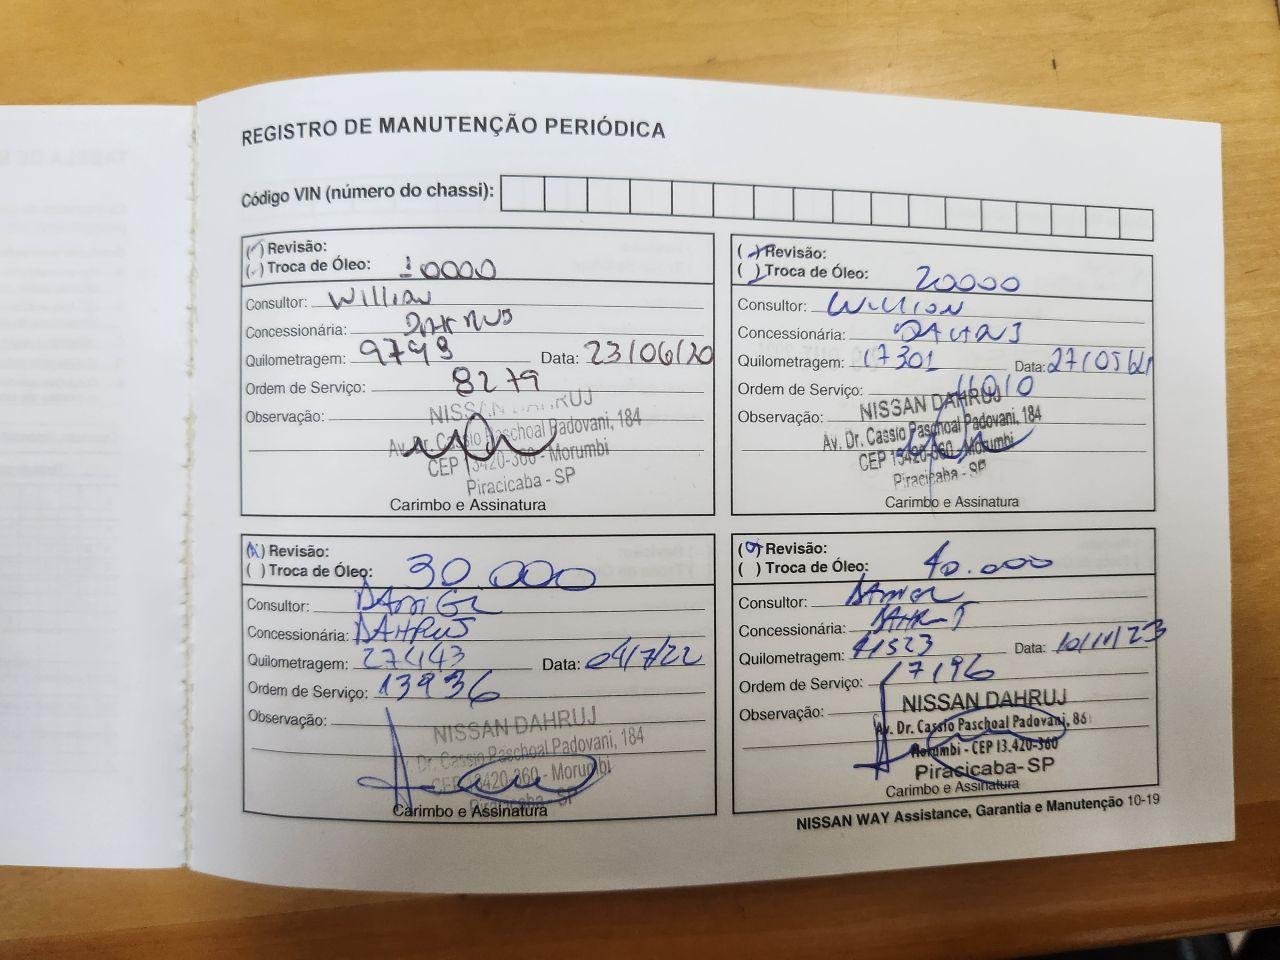 REGISTRO DE MANUTENÇÃO PERIÓDICA
Código VIN (número do chassi):
(✓) Revisão:
( ) Troca de Óleo: 10000
Consultor: Willian
Concessionária: DAHRUJ
Quilometragem: 9749 Data: 23/06/20
Ordem de Serviço: 8279
Observação:
NISSAN DAHRUJ
Av. Dr. Cassio Paschoal Padovani, 184
CEP 13420-360 - Morumbi
Piracicaba - SP
Carimbo e Assinatura
( ) Revisão:
( ) Troca de Óleo: 20000
Consultor: Willian
Concessionária: DAHRUJ
Quilometragem: 17301 Data: 27/05/21
Ordem de Serviço:
Observação:
NISSAN DAHRUJ
Av. Dr. Cassio Paschoal Padovani, 184
CEP 13420-360 - Morumbi
Piracicaba - SP
Carimbo e Assinatura
(X) Revisão:
( ) Troca de Óleo: 30.000
Consultor: DANIEL
Concessionária: DAHRUJ
Quilometragem: 27443 Data: 04/7/22
Ordem de Serviço: 13936
Observação:
NISSAN DAHRUJ
Av. Dr. Cassio Paschoal Padovani, 184
CEP 13420-360 - Morumbi
Piracicaba - SP
Carimbo e Assinatura
( ) Revisão:
( ) Troca de Óleo: 40.000
Consultor: DANIEL
Concessionária: DAHRUJ
Quilometragem: 41523 Data: 10/11/23
Ordem de Serviço: 17196
Observação:
NISSAN DAHRUJ
Av. Dr. Cassio Paschoal Padovani, 86
Morumbi - CEP 13.420-360
Piracicaba-SP
Carimbo e Assinatura
NISSAN WAY Assistance, Garantia e Manutenção 10-19